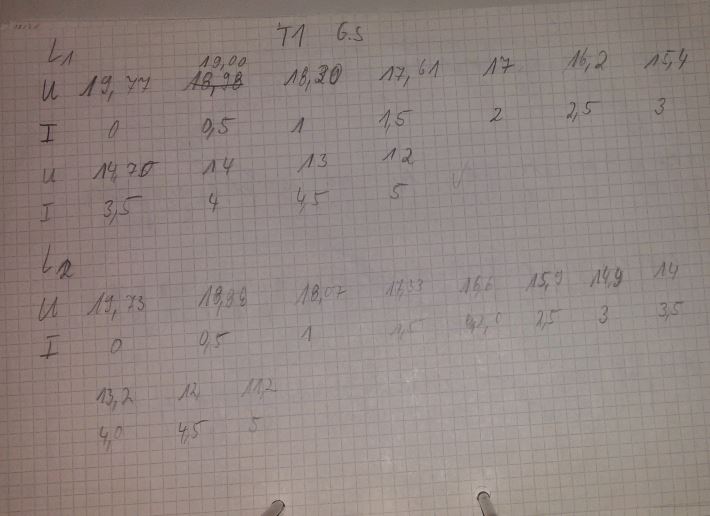 T1 G.S
L1
19,00
U 19,77 18,98 18,30 17,61 17 16,2 15,4
I 0 0,5 1 1,5 2 2,5 3
U 14,70 14 13 12
I 3,5 4 4,5 5
L2
U 19,73 18,07 17,33 16,6 15,9 14,9 14
I 0 0,5 1 1,5 2,0 2,5 3 3,5
13,2 12 11,2
4,0 4,5 5